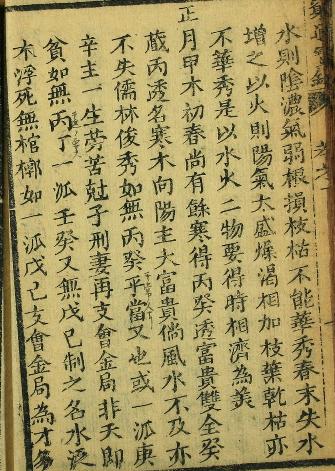 水則陰濃氣弱根損枝枯不能華秀春末失水
增之以火則陽氣太盛燥渴相加枝葉乾枯亦
不華秀是以水火二物要得時相濟為美
正月甲木初春尚有餘寒得丙癸透富貴雙全癸
藏丙透名寒木向陽主大富貴倘風水不及亦
不失儒林俊秀如無丙癸平常又也或一派庚
辛主一生勞苦尅子刑妻再支會金局非夭即
貧如無丙丁一派壬癸又無戊己制之名水泛
木浮死無棺槨如一派戊己支會金局為才多